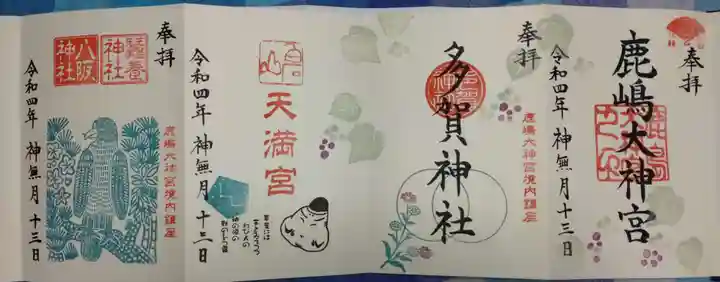 奉拝
鹿嶋大神宮
令和四年 神無月 十三日
奉拝
多賀神社
鹿嶋大神宮境内鎮座
令和四年 神無月 十三日
天満宮
奉拝
蠶養神社
八阪神社
鹿嶋大神宮境内鎮座
令和四年 神無月 十三日